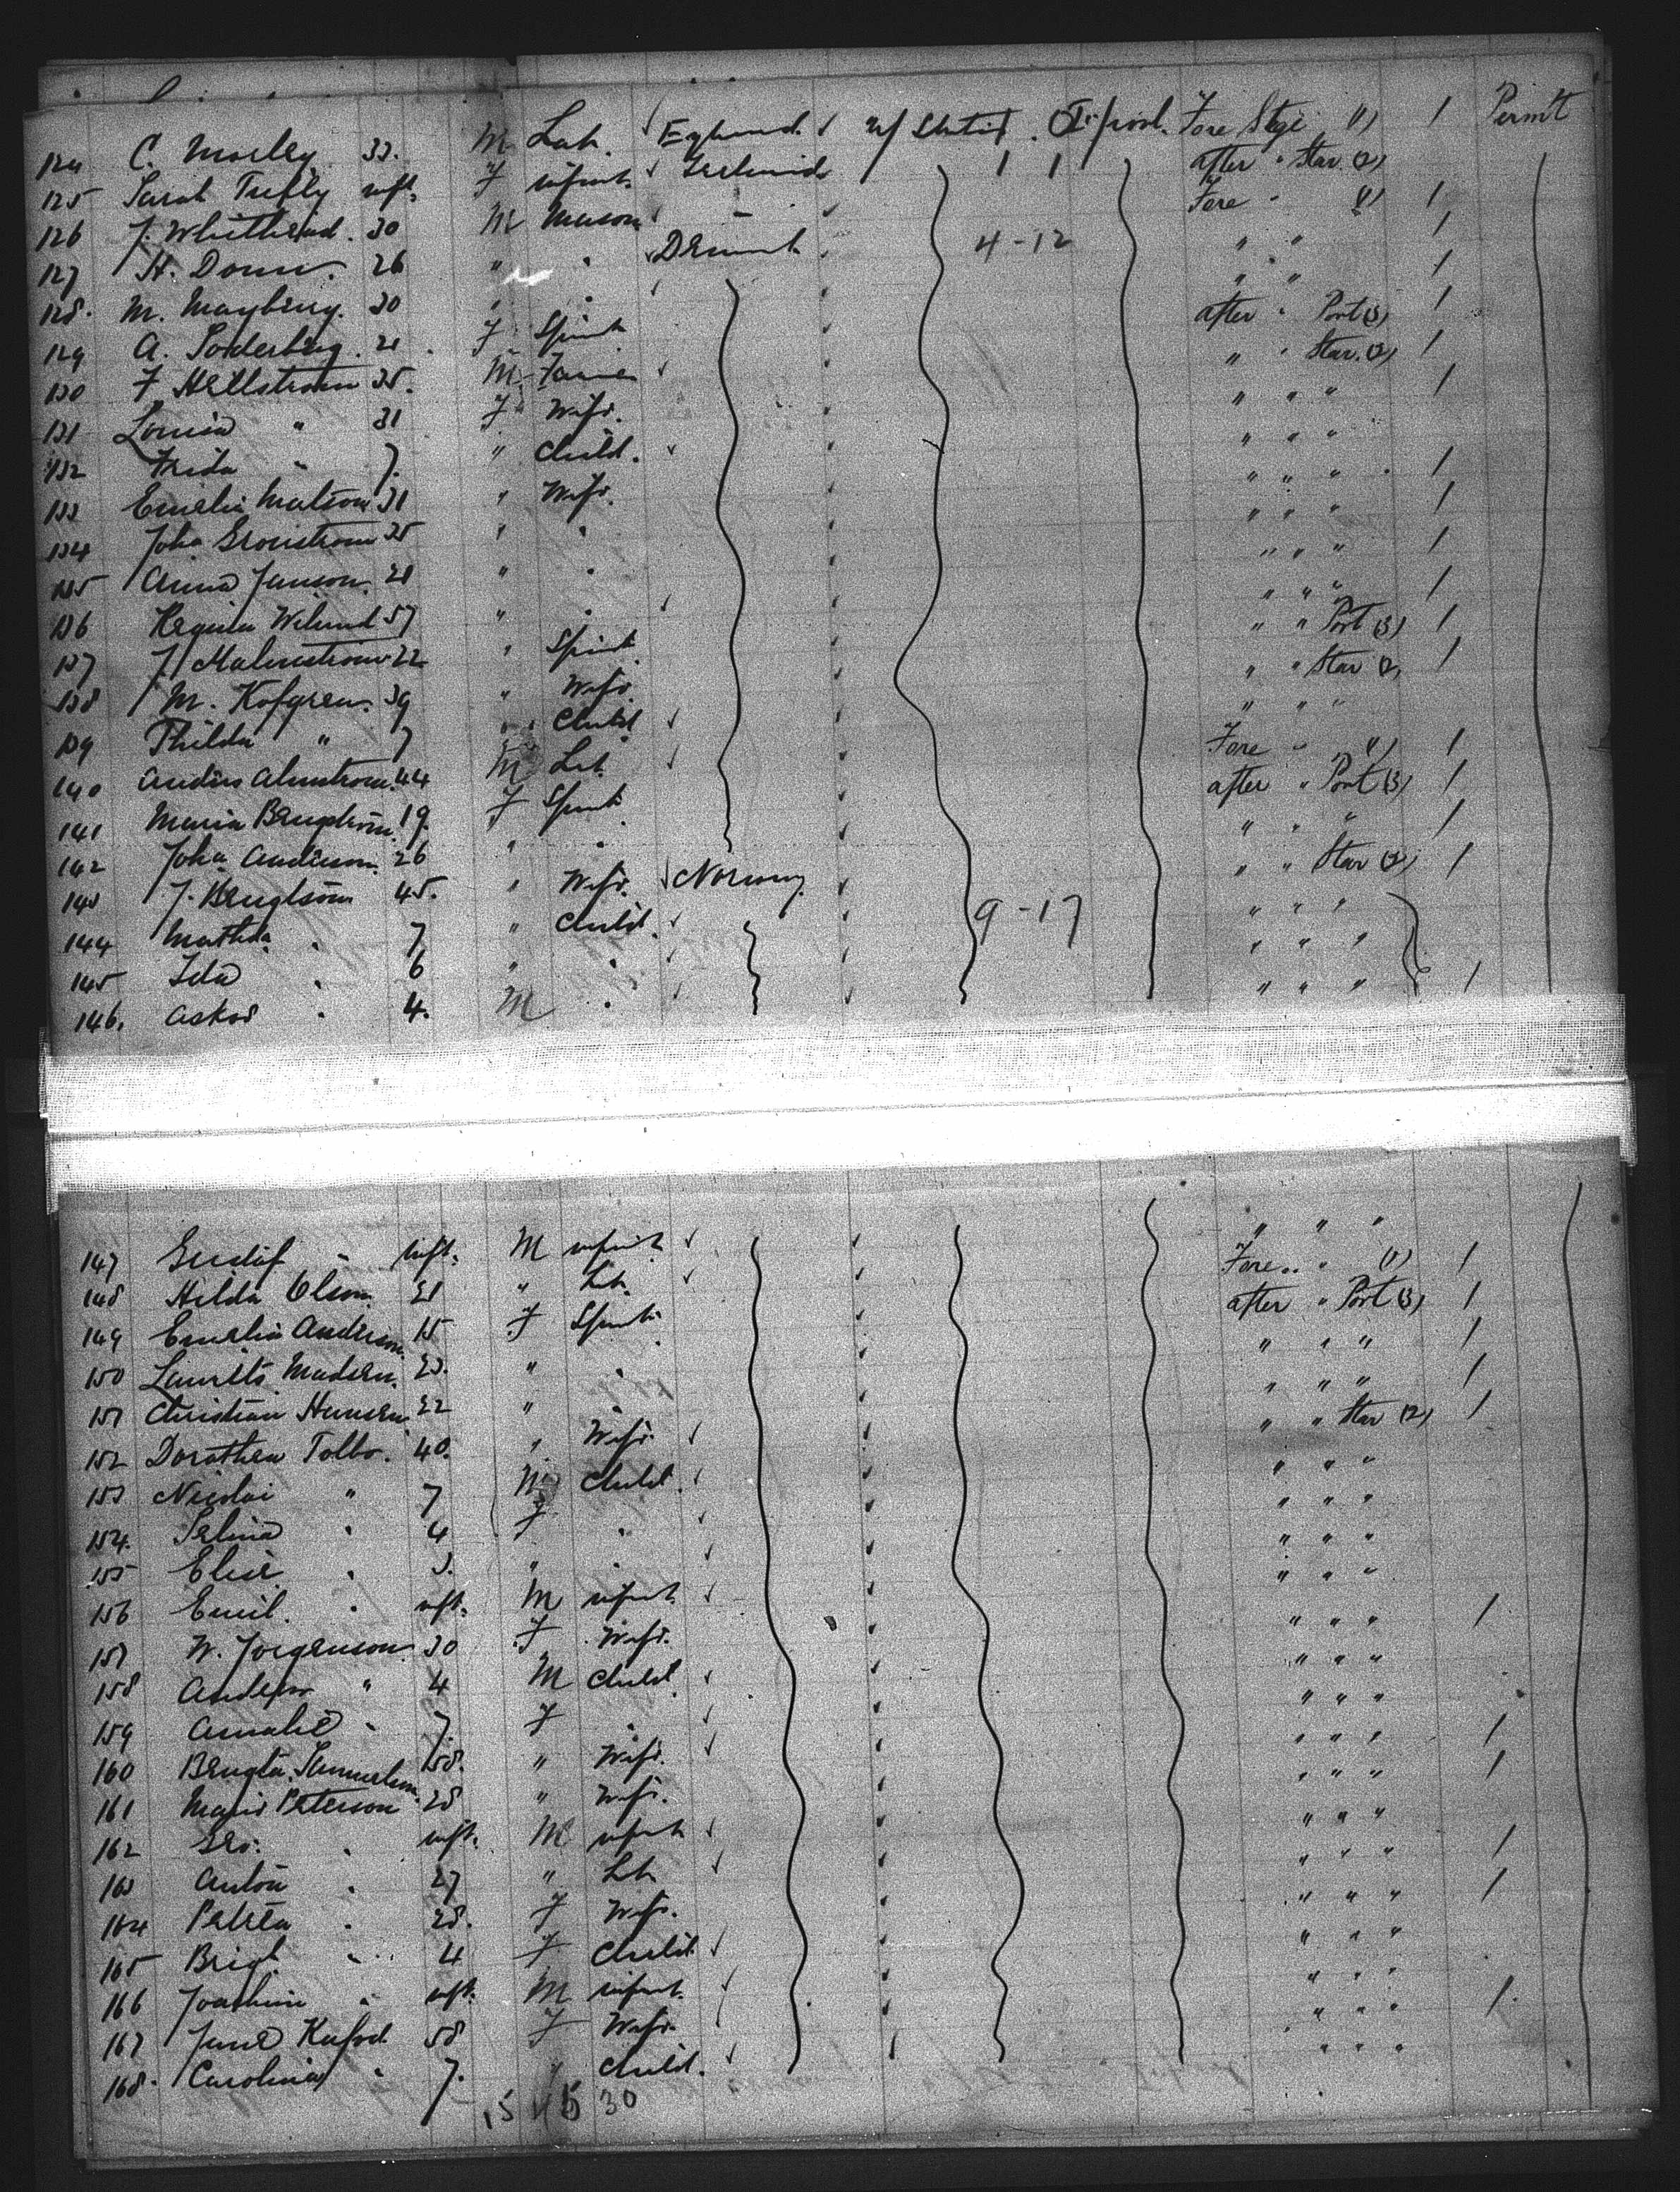 124 C. Morley 33. M Lab. England U/ States Liverpool. Fore Stge (1) 1 Permt
125 Sarah Trefly inft. F infant Ireland 1 1 after " Star (2)
126 J. Whithead. 30 M Mason - Fore " (1) 1
127 H. 26 " " Denmark 4-12 " " 1
128. M. Mayberg. 30 " " " " 1
129 A. Soderberg. 21 F Spinst after " Port (3) 1
130 F Hellstrom 35. M Farmer " " Star (2) 1
131 Louisa " 31 F Wife. " " " 1
132 Frida " 7. " Child. " " "
133 Emelia Matson 31 " Wife. " " " 1
134 Joha Gronstrom 35 " " " " " 1
135 Anna Janson. 28 " " " " " 1
136 Regina 57 " " " " " 1
137 J. Malmstrom 22 " Spinst " " Port (3) 1
138 M. Kofgren. 39 " Wife. " " Star (2) 1
139 Thilda " 7 " Child " " "
140 Anders Almstrom. 44 M Lab. Fore " (1) 1
141 Maria 19. F Spinst after " Port (3) 1
142 Joha Anderson. 26 " " " " " 1
143 J. Bengtson 45. " Wife. Norway " " Star (2) 1
144 Mathda " 7 " Child. 9-17 " " "
145 Ida " 6 " " " " "
146. Askar " 4. M " " " " 1
147 Gustaf " inft. M infant " " "
148 Hilda Olson. 21 " Lab. Fore " " (1) 1
149 Emelia Anderson. 15 F Spinst after " Port (3) 1
150 Laurits Madsen. 23. " " " " " 1
151 Christian Hansen 22 " " " " 1
152 Dorothea Tolbo. 40. " Wife. " " Star (2) 1
153 Nicolai " 7 M Child. " " "
154. Selina " 4 F " " " "
155 Elise " 3. " " " " "
156 Emil. " inft. M infant " " "
157 W. Jorgenson 30 F Wife. " " " 1
158 Anders " 4 M Child. " " "
159 Amalie " 7. F " " " "
160 Bengta Samuelson. 58. " Wife. " " " 1
161 Peterson 28 " Wife. " " " 1
162 Geo. " inft. M infant " " "
163 Anton " 27 " Lab " " " 1
164 Petrea " 28. F Wife. " " " 1
165 " 4 F Child " " "
166 Joachim " inft. M infant. " " "
167 Jane 58 F Wife. " " " 1.
168. Carolina " 7. " Child. " " "
15 45 30